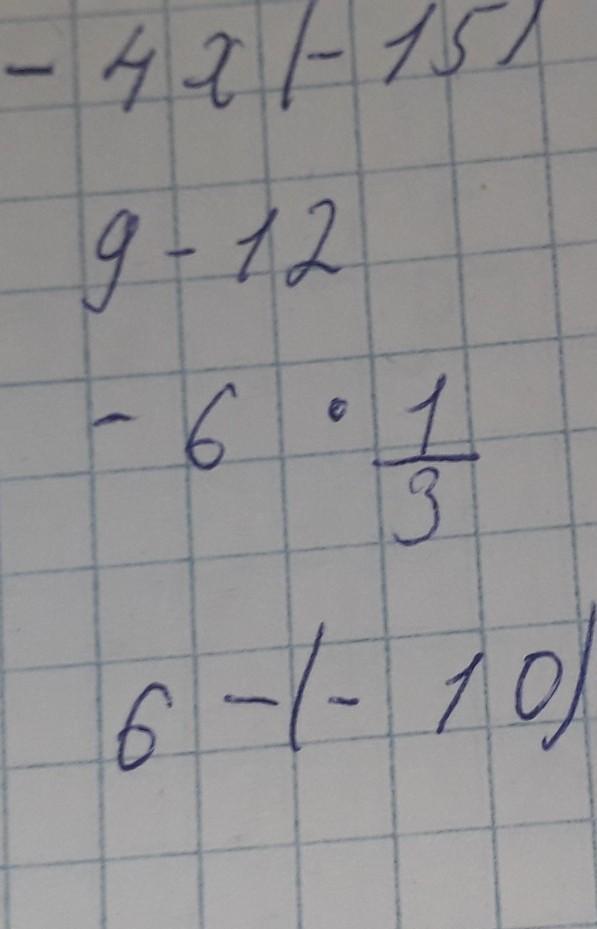 - 4 x (- 15)
9 - 12
- 6 · 1/3
6 - (- 10)